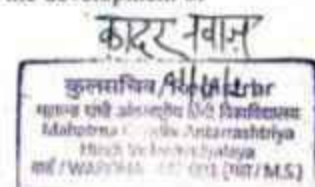 the development of
कादर नवाज़
कुलसचिव / Registrar
महात्मा गांधी अंतरराष्ट्रीय हिंदी विश्वविद्यालय
Mahatma Gandhi Antarrashtriya
Hindi Vishwavidyalaya
वर्धा / WARDHA
(महा / M.S.)